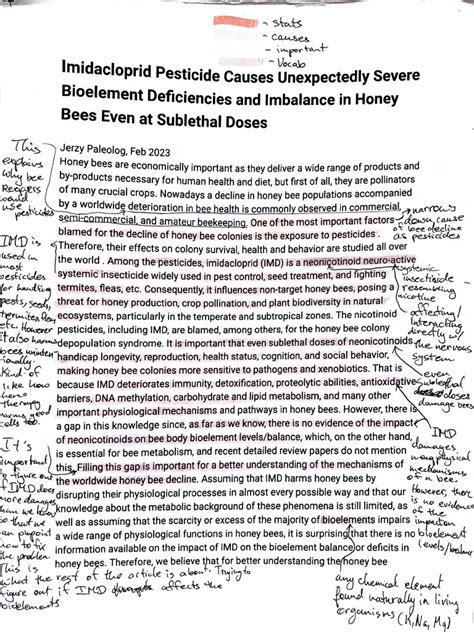 - stats
- causes
- important
- Vocab
Imidacloprid Pesticide Causes Unexpectedly Severe
Bioelement Deficiencies and Imbalance in Honey
Bees Even at Sublethal Doses
Jerzy Paleolog, Feb 2023
Honey bees are economically important as they deliver a wide range of products and
by-products necessary for human health and diet, but first of all, they are pollinators
of many crucial crops. Nowadays a decline in honey bee populations accompanied
by a worldwide deterioration in bee health is commonly observed in commercial,
semi-commercial, and amateur beekeeping. One of the most important factors
blamed for the decline of honey bee colonies is the exposure to pesticides.
Therefore, their effects on colony survival, health and behavior are studied all over
the world . Among the pesticides, imidacloprid (IMD) is a neonicotinoid neuro-active
systemic insecticide widely used in pest control, seed treatment, and fighting
termites, fleas, etc. Consequently, it influences non-target honey bees, posing a
threat for honey production, crop pollination, and plant biodiversity in natural
ecosystems, particularly in the temperate and subtropical zones. The nicotinoid
pesticides, including IMD, are blamed, among others, for the honey bee colony
depopulation syndrome. It is important that even sublethal doses of neonicotinoids
handicap longevity, reproduction, health status, cognition, and social behavior,
making honey bee colonies more sensitive to pathogens and xenobiotics. That is
because IMD deteriorates immunity, detoxification, proteolytic abilities, antioxidative
barriers, DNA methylation, carbohydrate and lipid metabolism, and many other
important physiological mechanisms and pathways in honey bees. However, there is
a gap in this knowledge since, as far as we know, there is no evidence of the impact
of neonicotinoids on bee body bioelement levels/balance, which, on the other hand,
is essential for bee metabolism, and recent detailed review papers do not mention
this. Filling this gap is important for a better understanding of the mechanisms of
the worldwide honey bee decline. Assuming that IMD harms honey bees by
disrupting their physiological processes in almost every possible way and that our
knowledge about the metabolic background of these phenomena is still limited, as
well as assuming that the scarcity or excess of the majority of bioelements impairs
a wide range of physiological functions in honey bees, it is surprising that there is no
information available on the impact of IMD on the bioelement balance or deficits in
honey bees. Therefore, we believe that for better understanding the honey bee
This
explains
why bee
could
use
pesticides
IMD is
used in
most
pesticides
for handling
pests, seeds,
termites, fleas,
etc. However
It also harms
bees
Kind of
like how
therapy
harms good
cells too
It's
important
to figure out
if IMD does
more damage
than we know
so that we
can pinpoint
how to fix
the problem.
This is
what the rest of the article is about. Trying to
figure out if IMD affects the
bioelements
narrows
down cause
of bee decline
as pesticides
systemic
insecticide
resembling
nicotine
affecting/
interacting
directly w/
the nervous
system
even
sublethal
doses
damage bees
IMD
damages
many physical
mechanisms
of a bee.
However, there
is no evidence
of the
impact on
bioelement
levels/balance
any chemical element
found naturally in living
organisms (K, Na, Mg)